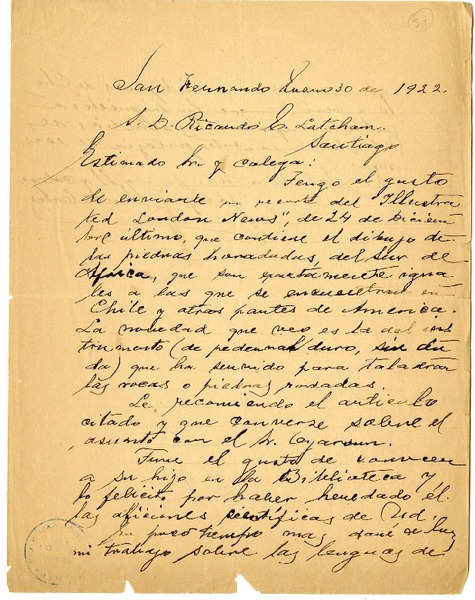 53
San Fernando Enero 30 de 1922.
S. D. Ricardo E. Latcham.
Santiago
Estimado Sr. y colega:
Tengo el gusto
de enviarle un recorte del "Illustra
ted London News", de 24 de Diciem
bre último, que contiene el dibujo de
las piedras horadadas, del sur de
Africa, que son exactamente igua
les a las que se encuentran en
Chile y otras partes de America.
La novedad que veo es la del ins
trumento (de pedernal duro, sin du
da) que ha servido para taladrar
las rocas o piedras rodadas.
Le recomiendo el artículo
citado y que converse sobre el
asunto con el Sr. Oyarzun.
Tuve el gusto de conocer
a su hijo en la Biblioteca y
lo felicito por haber heredado él
las aficiones científicas de Ud.
En poco tiempo mas, daré a luz
mi trabajo sobre las lenguas de